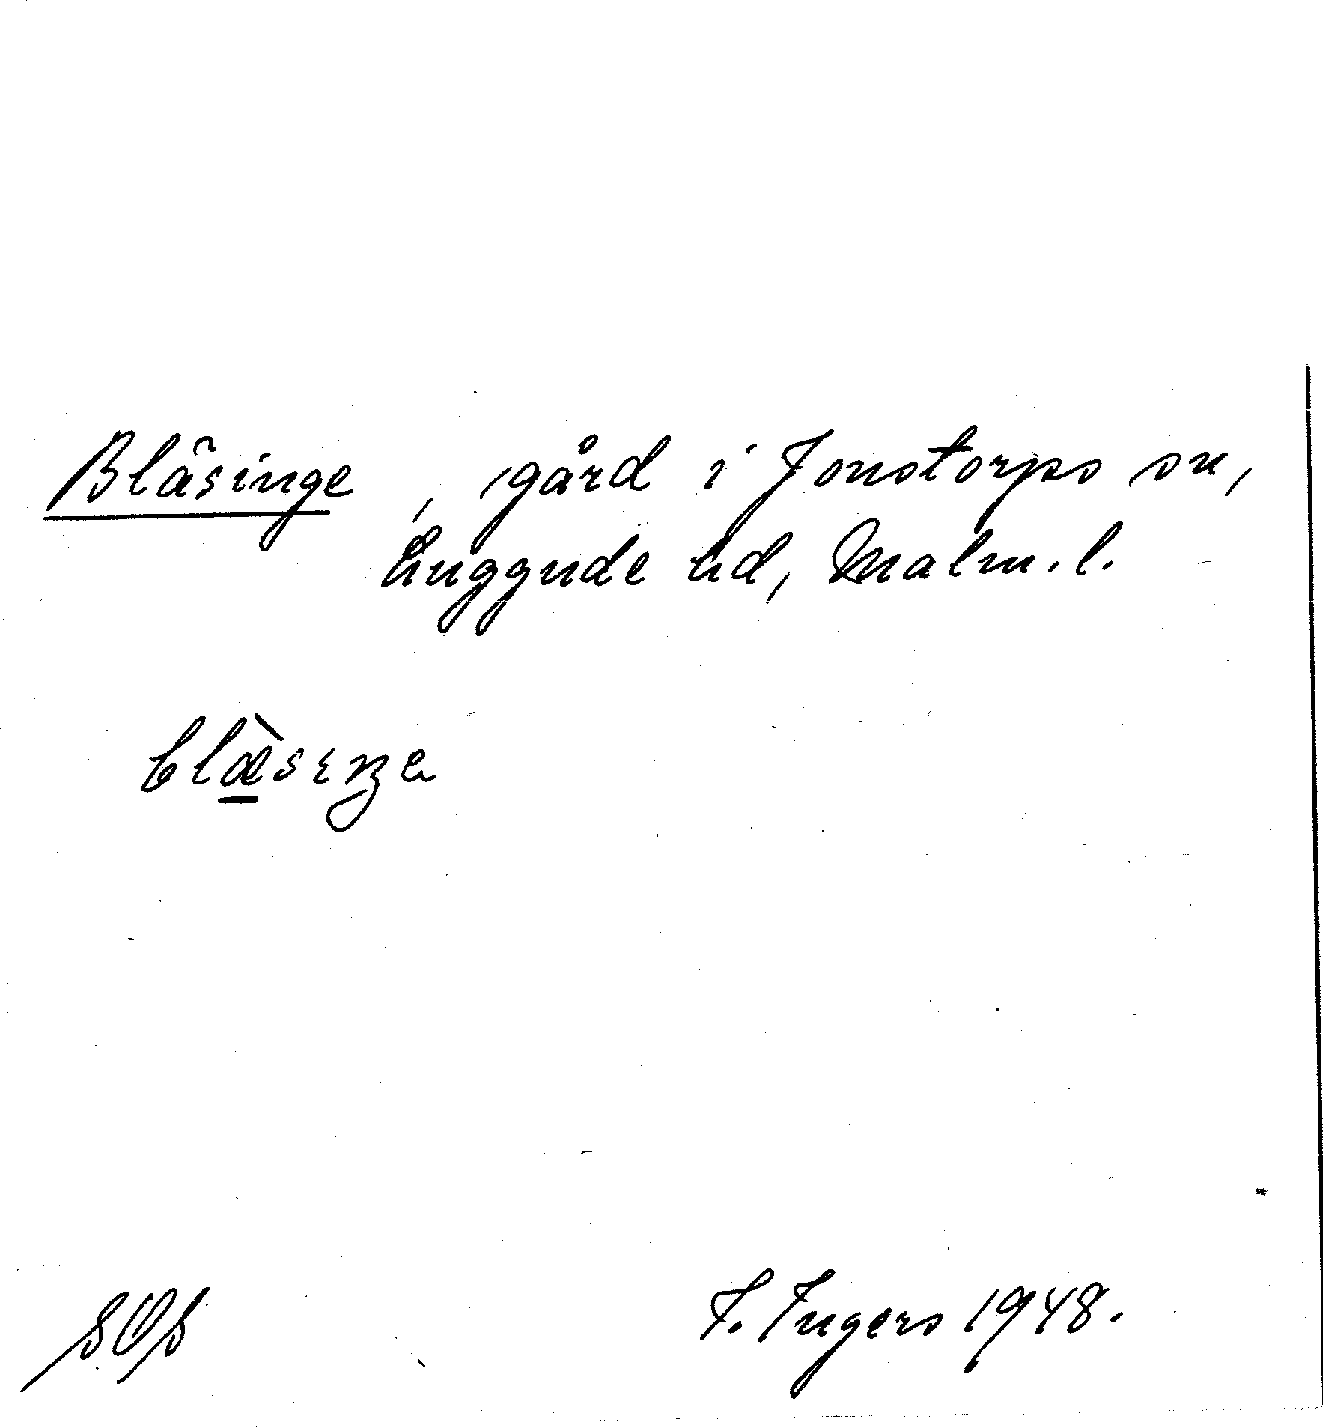 Blåsinge, gård i Jonstorps sn,
Luggude hd, Malm. l.
blæ̀sɩŋe
SOS
F. Ingers 1948.